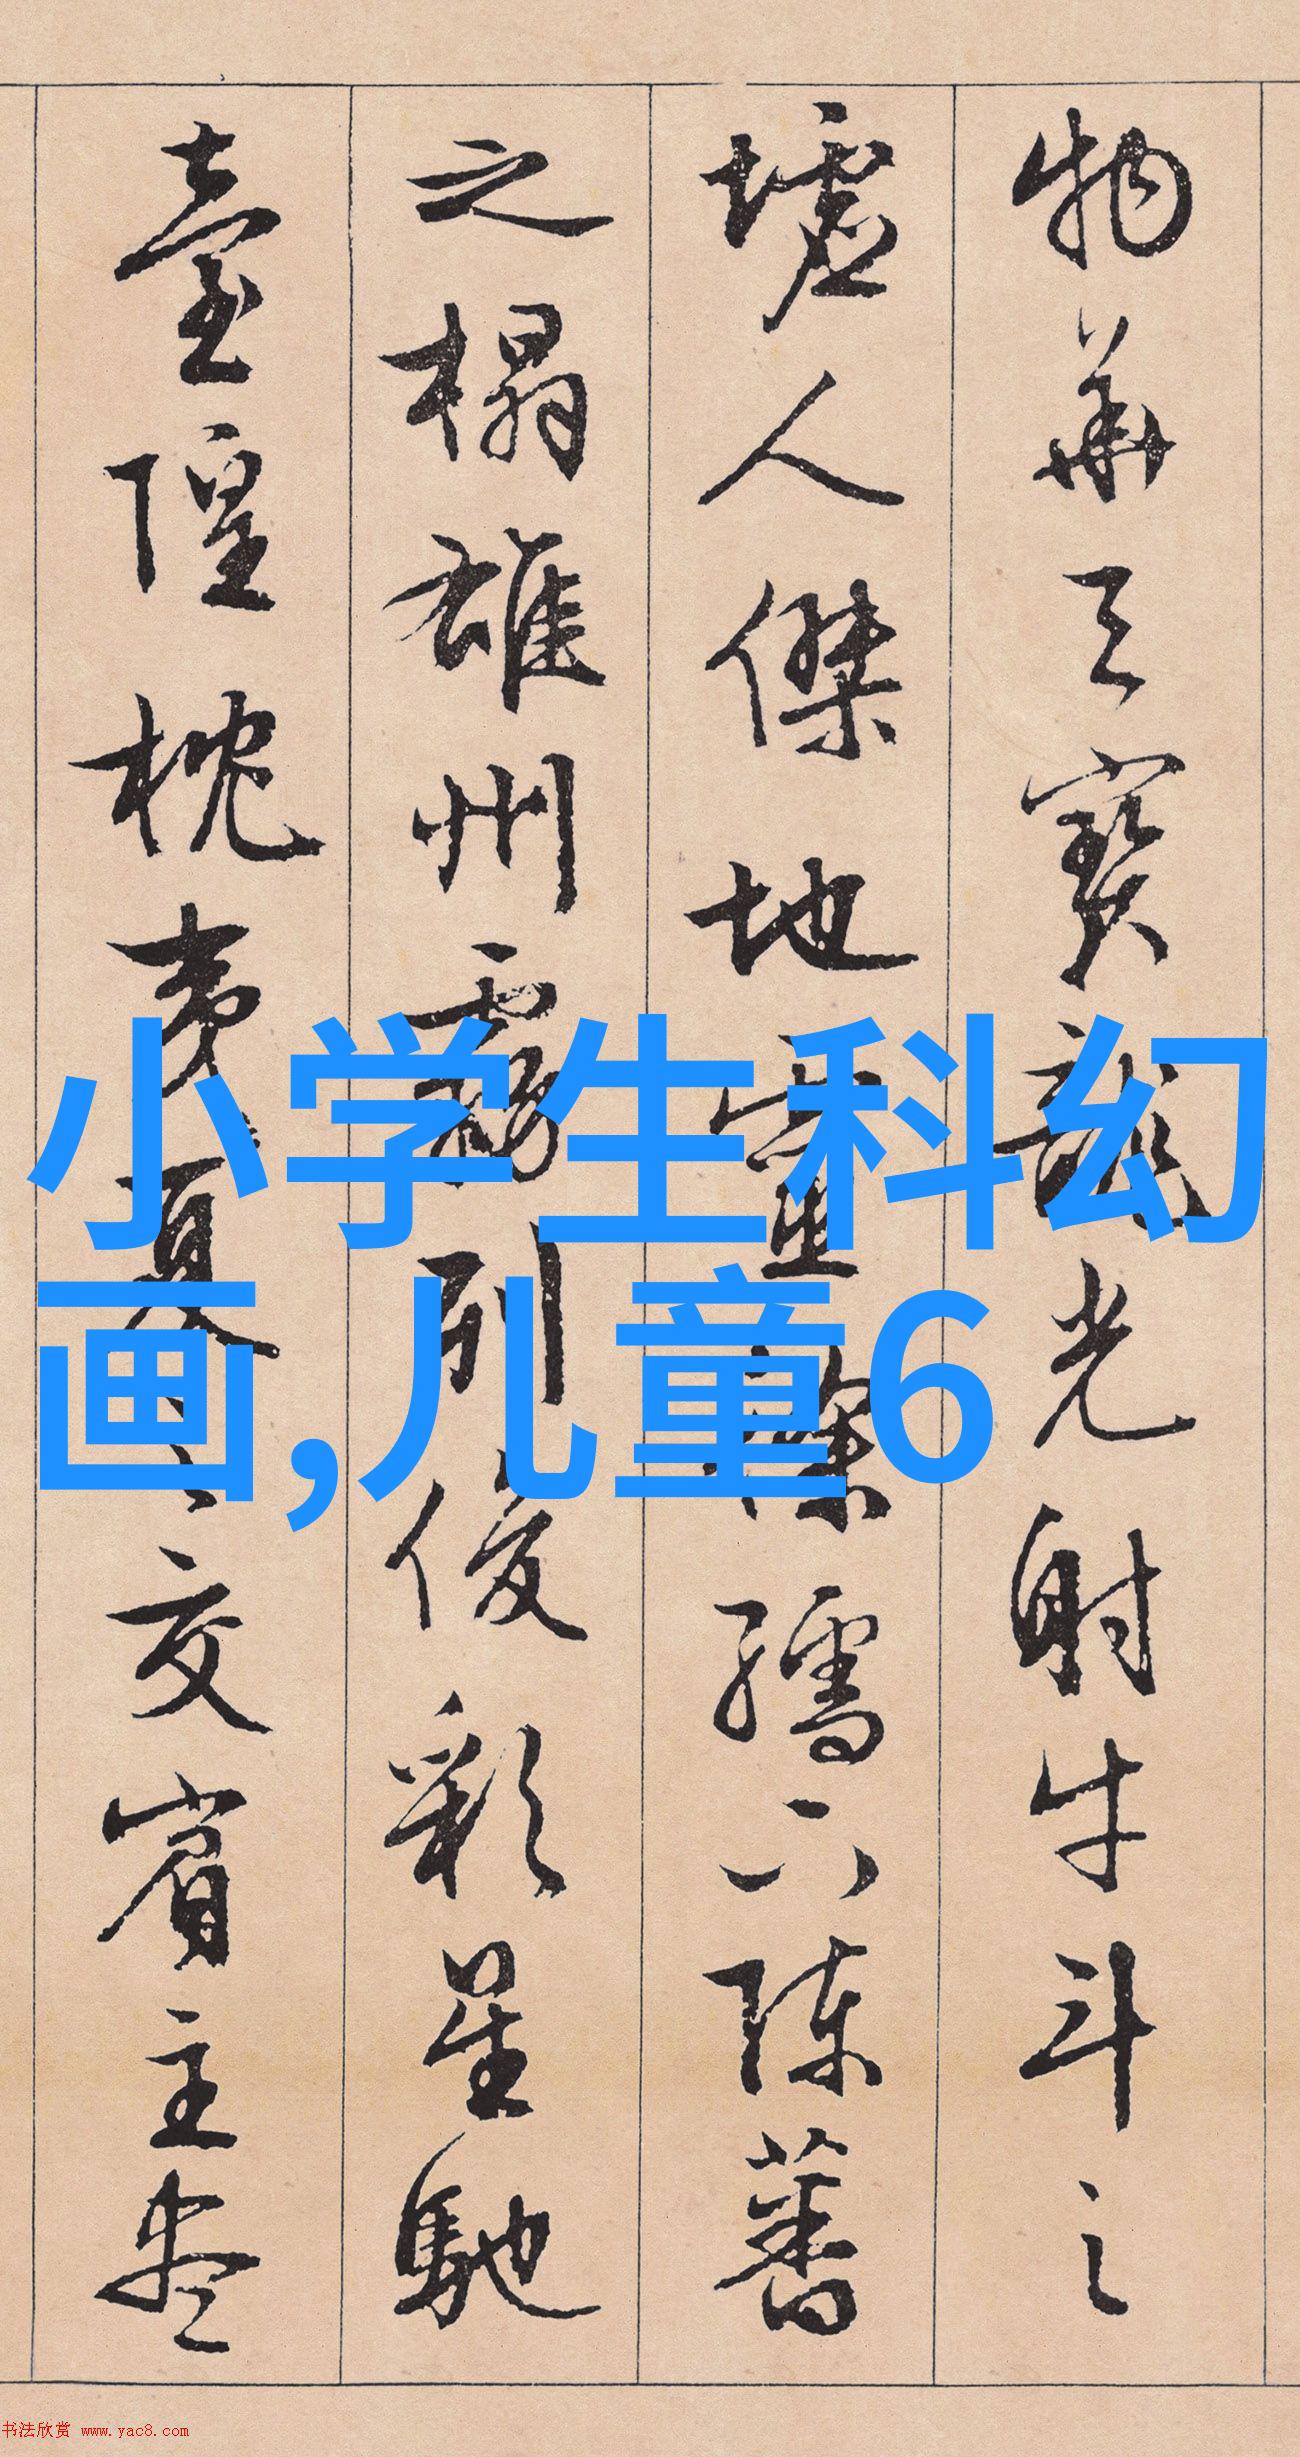 物華天寶龍光射牛斗之
墟人傑地靈徐孺下陳蕃
之榻雄州霧列俊彩星馳
臺隍枕夷夏之交賓主盡
小学生科幻
画,儿童6
书法欣赏 www.yac8.com